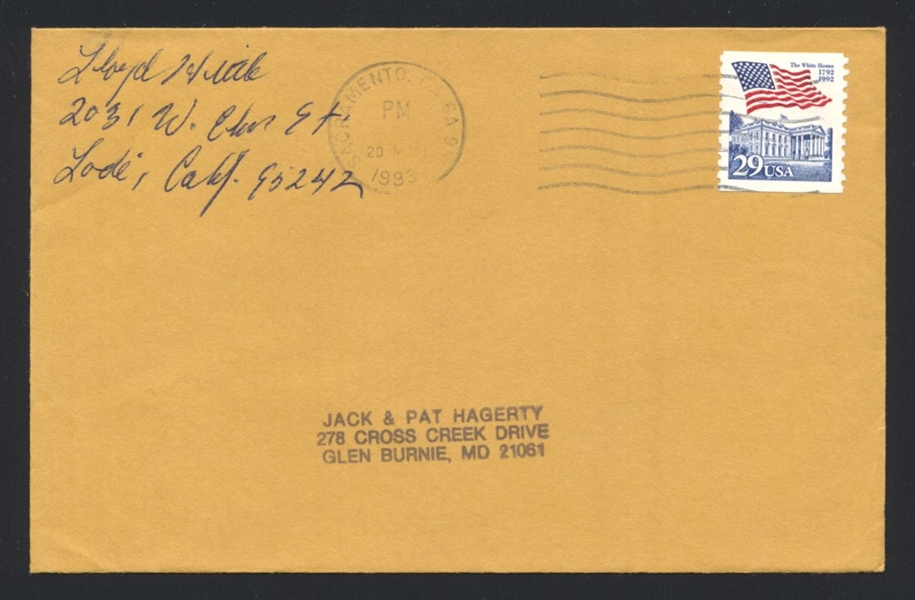 Lloyd
2031 W. Elm St.
Lodi, Calif. 95242
SACRAMENTO, CA
PM
20 M
1993
The White House
1792
1992
29 USA
JACK & PAT HAGERTY
278 CROSS CREEK DRIVE
GLEN BURNIE, MD 21061